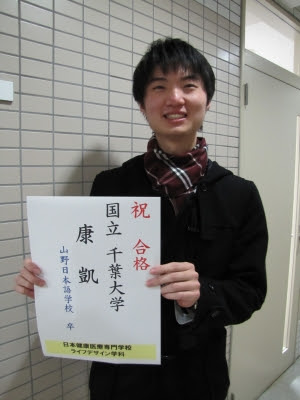 祝 合格
国立 千葉大学
康 凱
山野日本語学校 卒
日本健康医療専門学校
ライフデザイン学科